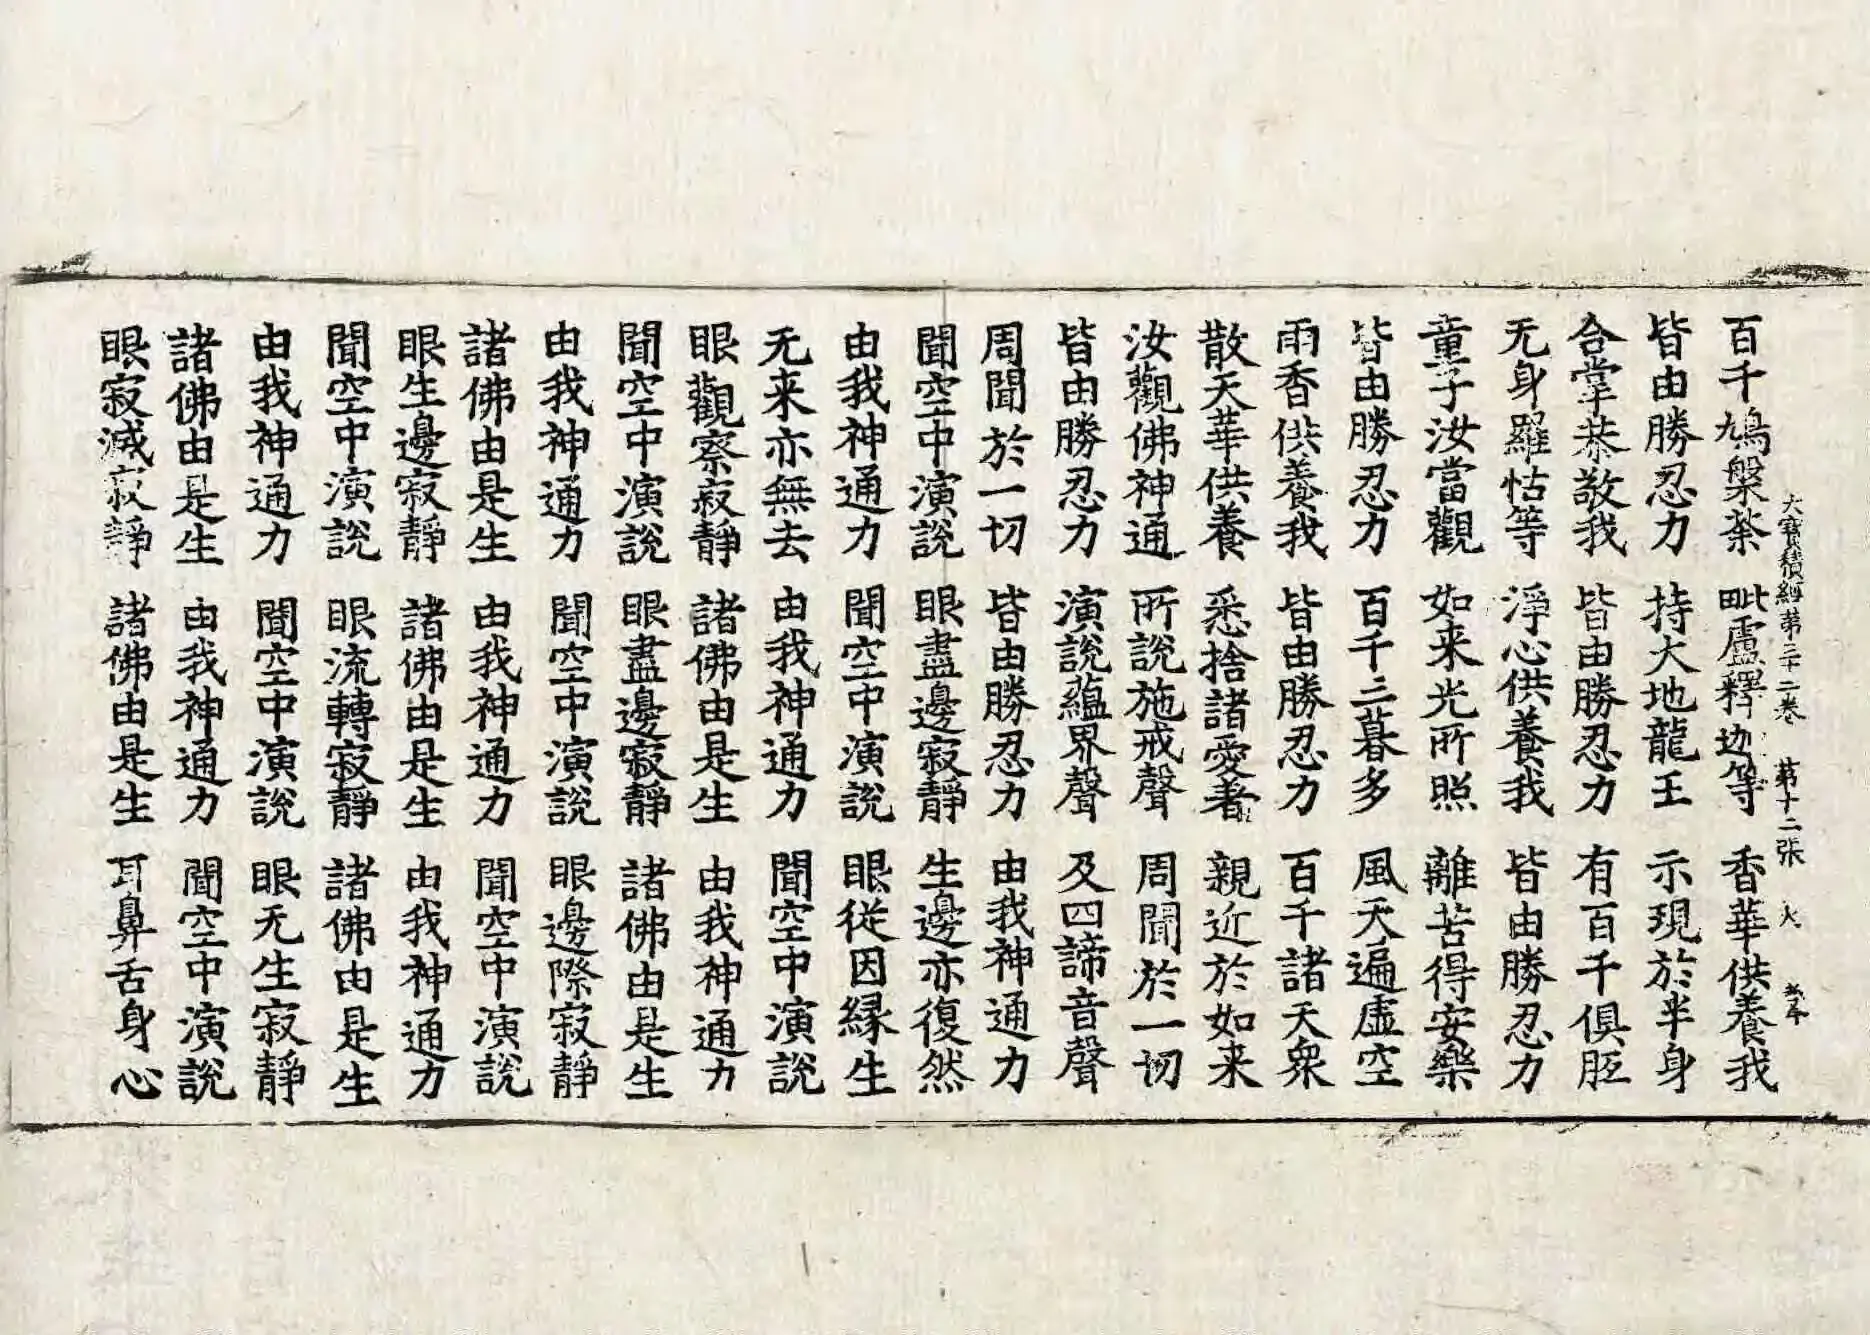 大寶積經第三十二卷 第十二張 火
百千鳩槃茶 毗盧釋迦等 香華供養我
皆由勝忍力 持大地龍王 示現於半身
合掌恭敬我 皆由勝忍力 有百千俱胝
无身羅怙等 淨心供養我 皆由勝忍力
童子汝當觀 如来光所照 離苦得安樂
皆由勝忍力 百千二暮多 風天遍虛空
雨香供養我 皆由勝忍力 百千諸天衆
散天華供養 悉捨諸愛著 親近於如来
汝觀佛神通 所說施戒聲 周聞於一切
皆由勝忍力 演說蘊界聲 及四諦音聲
周聞於一切 皆由勝忍力 由我神通力
聞空中演說 眼盡邊寂靜 生邊亦復然
由我神通力 聞空中演說 眼從因緣生
无来亦無去 由我神通力 聞空中演說
眼觀察寂靜 諸佛由是生 由我神通力
聞空中演說 眼盡邊寂靜 諸佛由是生
由我神通力 聞空中演說 眼邊際寂靜
諸佛由是生 由我神通力 聞空中演說
眼生邊寂靜 諸佛由是生 由我神通力
聞空中演說 眼流轉寂靜 諸佛由是生
由我神通力 聞空中演說 眼无生寂靜
諸佛由是生 由我神通力 聞空中演說
眼寂滅寂靜 諸佛由是生 耳鼻舌身心